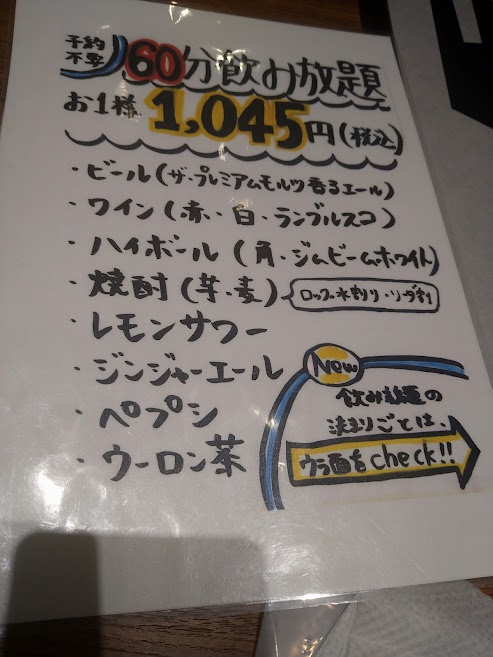 予約
不要
60分飲み放題
お1様 1,045円(税込)
・ビール(ザ・プレミアムモルツ香るエール)
・ワイン(赤・白・ランブルスコ)
・ハイボール(角・ジムビームホワイト)
・焼酎(芋・麦) ロック・水割り・ソーダ割
・レモンサワー
・ジンジャーエール
・ペプシ
・ウーロン茶
New
飲み放題の
決まりごとは、
ウラ面をcheck!!